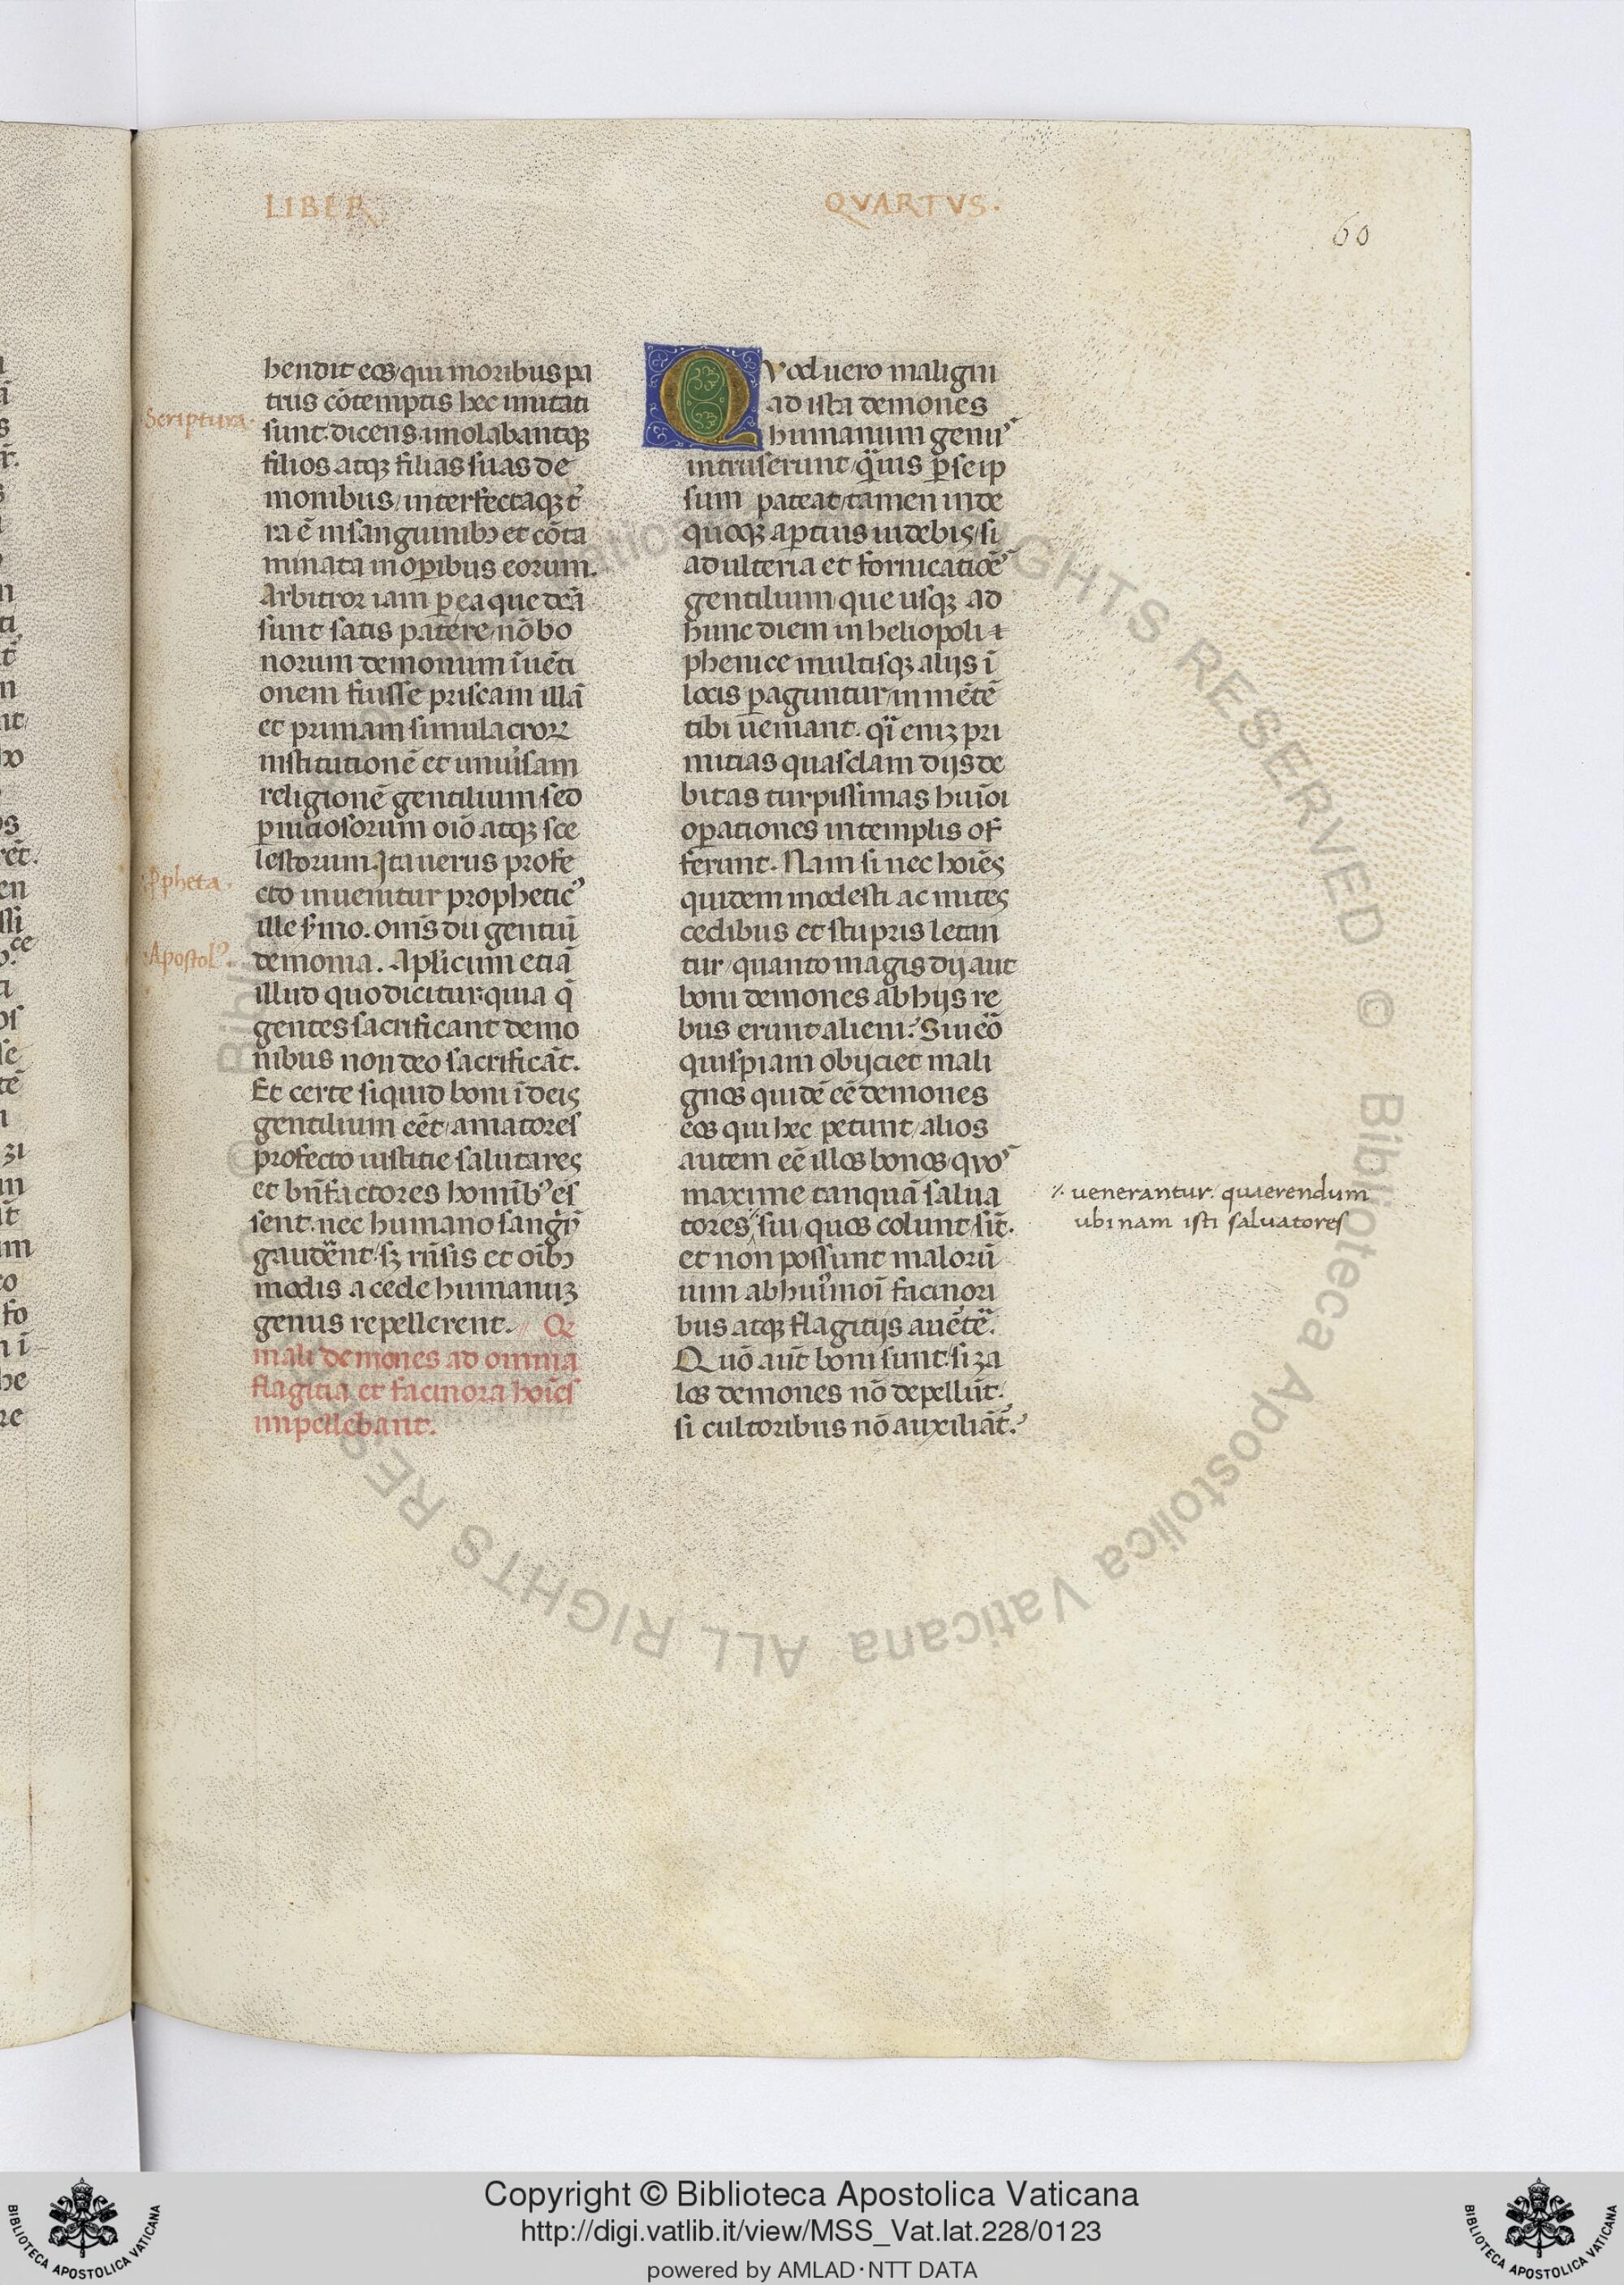 LIBER QVARTVS.
60
hendit eos/qui moribus pa
triis cõtemptis hec imitati
Scriptura.
sunt. dicens. imolabantqꝫ
filios atqꝫ filias suas de
monibus/interfectaqꝫ t̃
ra ẽ in sanguinibꝫ et cõta
minata in oꝑibus eorum.
Arbitror iam ꝑ ea que dcã
sunt satis patere/nõ bo
norum demonum ĩuẽti
onem fuisse priscam illã
et primam simulacroꝝ
institutionẽ et uniũsam
religionẽ gentilium/sed
ꝑnitiosorum oĩo atqꝫ sce
lestorum. Ita uerus profe
ꝓpheta.
cto inuenitur propheticꝰ
ille ẜmo. om̃s dii gentiũ
Apostolꝰ.
demonia. Aplicum etiã
illud quo dicitur. quia q̃
gentes sacrificant demo
nibus non deo sacrificãt.
Et certe siquid boni ĩ deis
gentilium eẽt/amatores
profecto iustitie salutares
et bñfactores homĩbꝰ es
sent. nec humano sanguĩe
gaudẽnt/sꝫ risis et oĩbꝫ
modis a cede humanuꝫ
genus repellerent. Qꝫ
mali demones ad omnia
flagitia et facinora hoĩes
impellebant.
Qvod uero maligni
ad ista demones
humanum genꝰ
intruserunt/q̃uis ꝑ se ip
sum pateat/tamen inde
quoqꝫ aꝑtius uidebis/si
adulteria et fornicatiões
gentilium/que usqꝫ ad
hunc diem in heliopoli ⁊
phenice multisqꝫ alijs ĩ
locis ꝑaguntur/in mẽtẽ
tibi ueniant. qĩ eniꝫ pri
mitias quasdam dijs de
bitas turpissimas huĩoi
oꝑationes in templis of
ferunt. Nam si nec hoĩes
quidem modesti ac mites
cedibus et stupris letan
tur/quanto magis dij aut
boni demones ab hijs re
bus erunt alieni? Sin eõ
quispiam obijciet mali
gnos quidẽ eẽ demones
eos qui hec petunt/alios
autem eẽ illos bonos/quos
maxime tanquã salua
tores ⁒ sui/quos colunt/sĩt.
⁒ venerantur. quaerendum
ubi nam isti salvatores
et non possunt malorũ
uim ab huĩmoĩ facinori
bus atqꝫ flagitijs auẽtẽ.
Quõ aũt boni sunt/si ma
los demones nõ depellũt.
si cultoribus nõ auxiliãt?
Copyright © Biblioteca Apostolica Vaticana
http://digi.vatlib.it/view/MSS_Vat.lat.228/0123
powered by AMLAD·NTT DATA
BIBLIOTECA APOSTOLICA VATICANA
BIBLIOTECA APOSTOLICA VATICANA